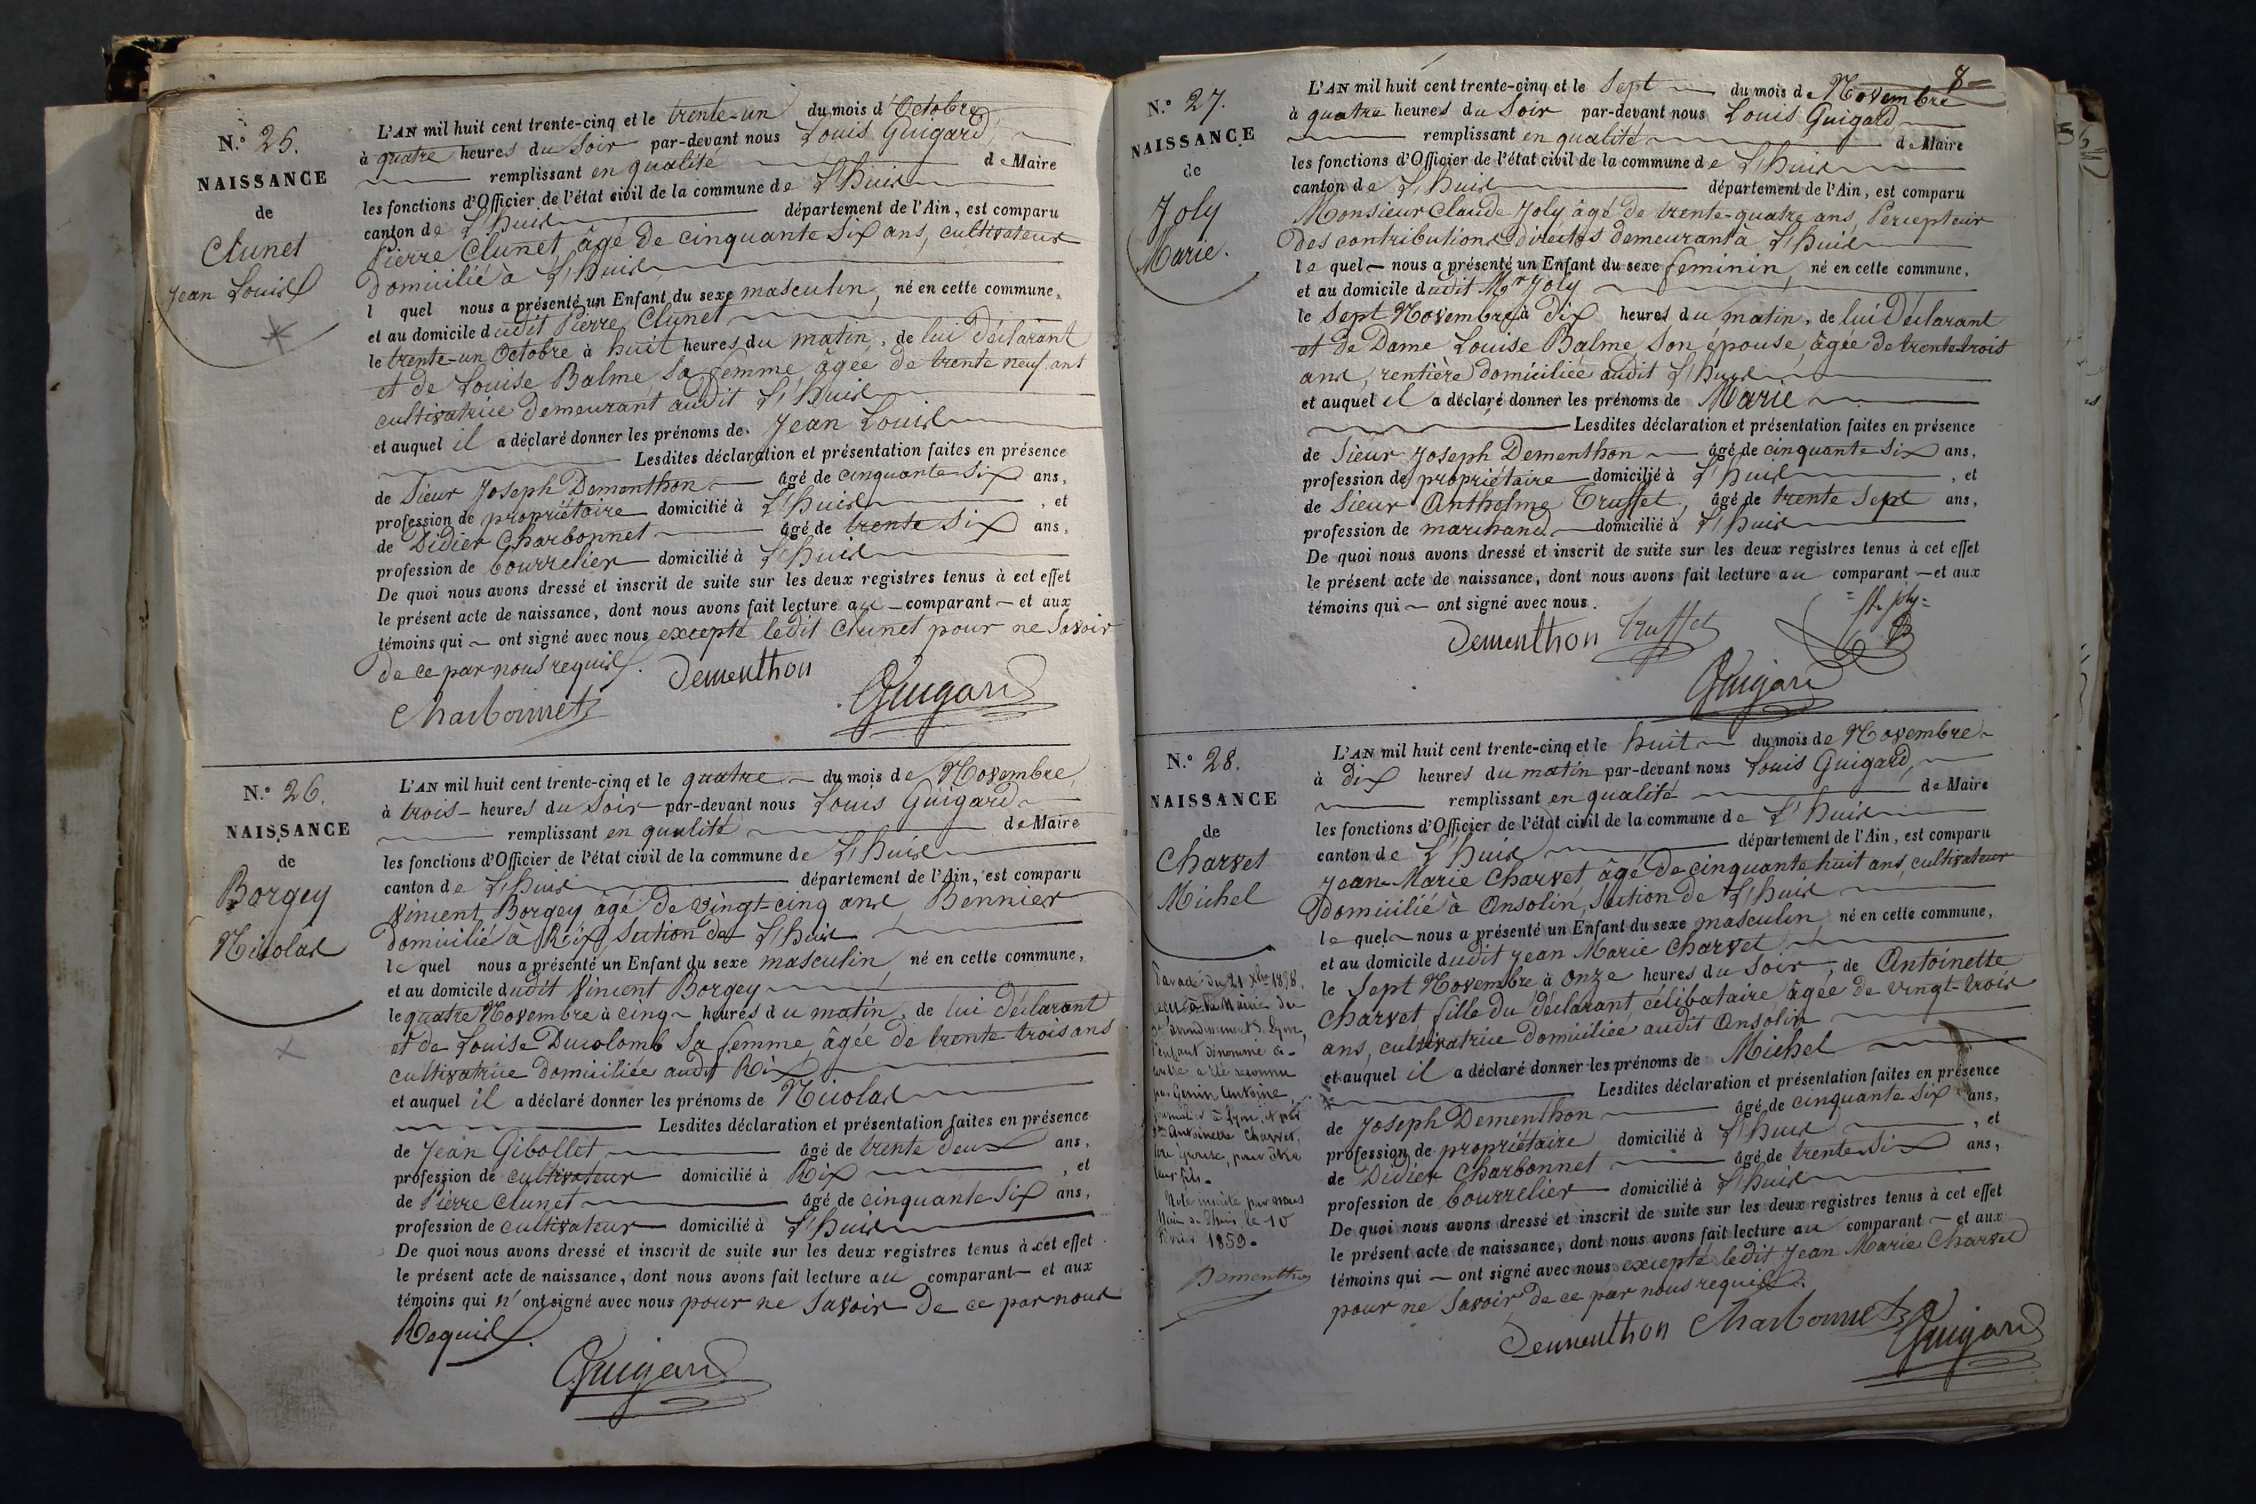 N.° 25.
NAISSANCE
de
Clunet
Jean Louis
L'AN mil huit cent trente-cinq et le trente-un du mois d'Octobre
à quatre heures du Soir par-devant nous Louis Guigard,
remplissant en qualité de Maire
les fonctions d'Officier de l'état civil de la commune de L'huis
canton de L'huis département de l'Ain, est comparu
Pierre Clunet, âgé de cinquante Six ans, cultivateur
domicilié à L'huis
l quel nous a présenté un Enfant du sexe masculin, né en cette commune,
et au domicile dudit Pierre Clunet
le trente-un Octobre à huit heures du matin, de lui déclarant
et de Louise Balme Sa femme, âgée de trente neuf ans
cultivatrice demeurant audit L'huis
et auquel il a déclaré donner les prénoms de Jean Louis
Lesdites déclaration et présentation faites en présence
de Sieur Joseph Dementhon âgé de cinquante Six ans,
profession de propriétaire domicilié à L'huis, et
de Didier Charbonnet âgé de trente Six ans,
profession de bourrelier domicilié à L'huis
De quoi nous avons dressé et inscrit de suite sur les deux registres tenus à cet effet
le présent acte de naissance, dont nous avons fait lecture au comparant et aux
témoins qui ont signé avec nous excepté ledit Clunet pour ne Savoir
de ce par nous requis.
Dementhon
Charbonnet
Guigard
N.° 26.
NAISSANCE
de
Borgey
Nicolas
L'AN mil huit cent trente-cinq et le quatre du mois de Novembre,
à trois heures du Soir par-devant nous Louis Guigard
remplissant en qualité de Maire
les fonctions d'Officier de l'état civil de la commune de L'huis
canton de L'huis département de l'Ain, est comparu
Vincent Borgey âgé de vingt-cinq ans, Bennier
domicilié à Rix Section de L'huis
le quel nous a présenté un Enfant du sexe masculin, né en cette commune,
et au domicile dudit Vincent Borgey
le quatre Novembre à cinq heures du matin, de lui déclarant
et de Louise Ducolomb Sa femme, âgée de trente trois ans
cultivatrice domiciliée audit Rix
et auquel il a déclaré donner les prénoms de Nicolas
Lesdites déclaration et présentation faites en présence
de Jean Gibollet âgé de trente deux ans,
profession de cultivateur domicilié à Rix, et
de Pierre Clunet âgé de cinquante Six ans,
profession de cultivateur domicilié à L'huis
De quoi nous avons dressé et inscrit de suite sur les deux registres tenus à cet effet
le présent acte de naissance, dont nous avons fait lecture au comparant et aux
témoins qui n'ont signé avec nous pour ne Savoir De ce par nous
Requis.
Guigard
8
N.° 27.
NAISSANCE
de
Joly
Marie.
L'AN mil huit cent trente-cinq et le Sept du mois de Novembre
à quatre heures du Soir par-devant nous Louis Guigard
remplissant en qualité de Maire
les fonctions d'Officier de l'état civil de la commune de L'huis
canton de L'huis département de l'Ain, est comparu
Monsieur Claude Joly âgé de trente-quatre ans, Percepteur
Des contributions directes demeurant à L'huis
le quel nous a présenté un Enfant du sexe feminin, né en cette commune,
et au domicile dudit Mr Joly
le Sept Novembre à dix heures du matin, de lui Déclarant
et de Dame Louise Balme Son épouse, âgée de trente-trois
ans, rentière domiciliée audit L'huis
et auquel il a déclaré donner les prénoms de Marie
Lesdites déclaration et présentation faites en présence
de Sieur Joseph Dementhon âgé de cinquante Six ans,
profession de propriétaire domicilié à L'huis, et
de Sieur Anthelme Truffet, âgé de trente Sept ans,
profession de marchand domicilié à L'huis
De quoi nous avons dressé et inscrit de suite sur les deux registres tenus à cet effet
le présent acte de naissance, dont nous avons fait lecture au comparant et aux
témoins qui ont signé avec nous.
Dementhon Truffet Joly
Guigard
N.° 28.
NAISSANCE
de
Charvet
Michel
L'AN mil huit cent trente-cinq et le huit du mois de Novembre
à dix heures du matin par-devant nous Louis Guigard,
remplissant en qualité de Maire
les fonctions d'Officier de l'état civil de la commune de L'huis
canton de L'huis département de l'Ain, est comparu
Jean-Marie Charvet, âgé de cinquante huit ans, cultivateur
Domicilié à Ansolin, Section de L'huis
le quel nous a présenté un Enfant du sexe masculin, né en cette commune,
et au domicile dudit Jean Marie Charvet
le Sept Novembre à Onze heures du Soir, de Antoinette
Charvet fille du déclarant, célibataire, âgée de vingt-trois
ans, cultivatrice domiciliée audit Ansolin
et auquel il a déclaré donner les prénoms de Michel
Lesdites déclaration et présentation faites en présence
de Joseph Dementhon âgé de cinquante Six ans,
profession de propriétaire domicilié à L'huis, et
de Didier Charbonnet âgé de trente Six ans,
profession de bourrelier domicilié à L'huis
De quoi nous avons dressé et inscrit de suite sur les deux registres tenus à cet effet
le présent acte de naissance, dont nous avons fait lecture au comparant et aux
témoins qui ont signé avec nous excepté ledit Jean Marie Charvet
pour ne Savoir De ce par nous requis.
Dementhon Charbonnet Guigard
du 21 Xbre 1858,
Mairie du
arrondissement de Lyon,
l'enfant dénommé ci-
contre a été reconnu
par Genin Antoine,
à Lyon, et par
Antoinette Charvet,
son épouse, pour être
leur fils.
Note inscrite par nous
Maire de Lhuis le 10
1859.
Dementhon